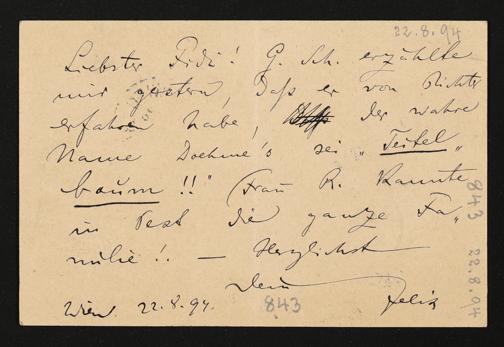 22.8.94
Liebster Fidi! G. Sch. erzählte
mir gestern, daß er von Richter
erfahren habe, der wahre
Name Doehme's sei „Teitel„
baum!!" (Frau R. kannte
in Pest die ganze Fa„
milie!! — Herzlichst
Dein Felix
Wien. 22.8.94.
843
843 22.8.94